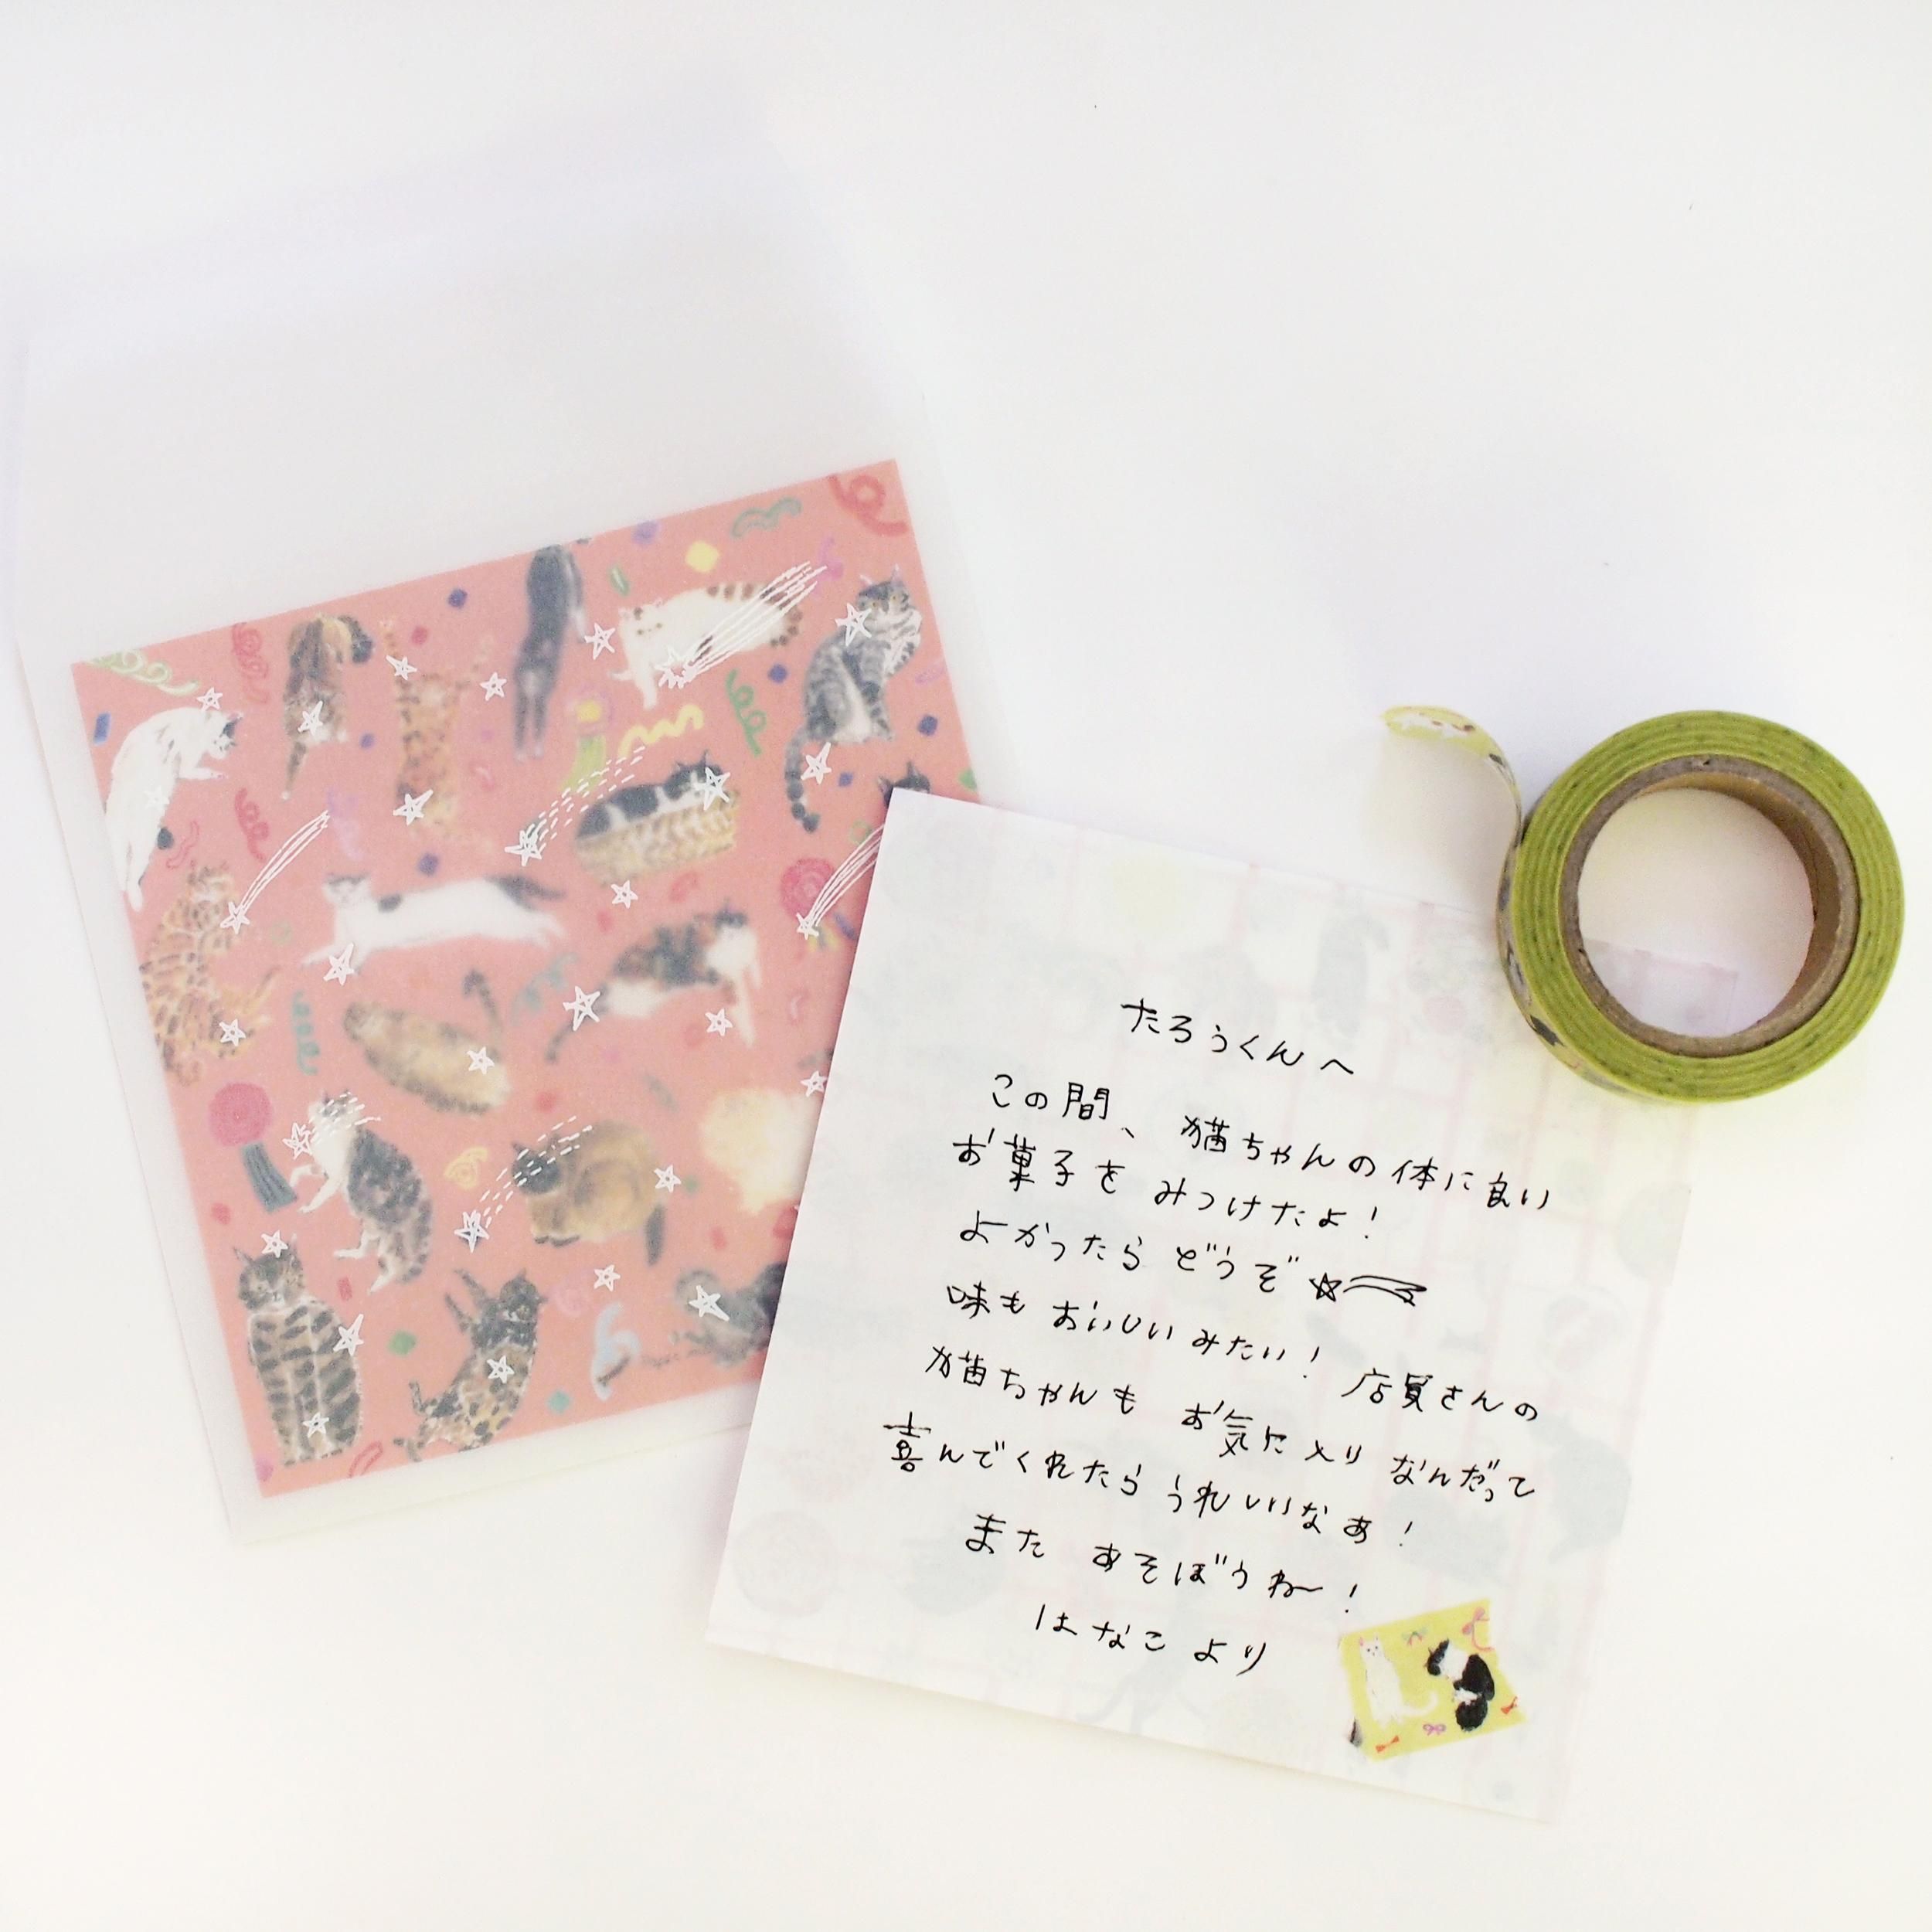 たろうくんへ
この間、猫ちゃんの体に良い
お菓子をみつけたよ！
よかったらどうぞ☆
味もおいしいみたい！店員さんの
猫ちゃんもお気に入りなんだって
喜んでくれたらうれしいなぁ！
またあそぼうね〜！
はなこより